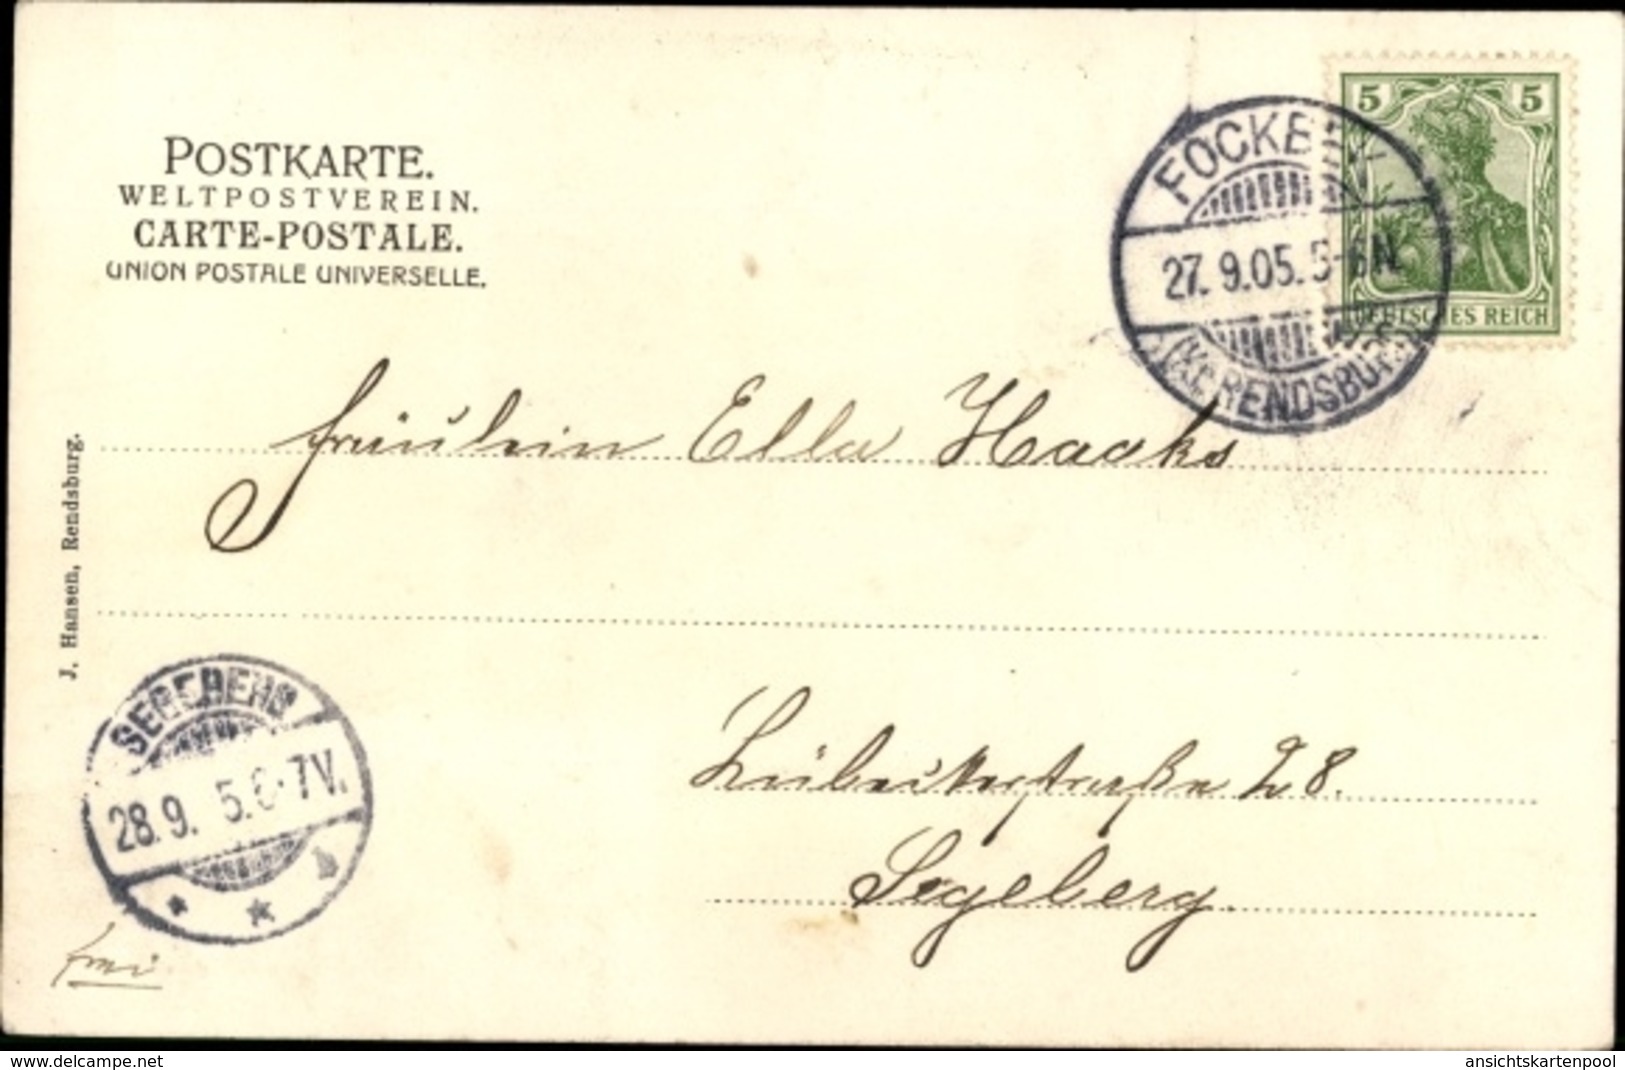 POSTKARTE.
WELTPOSTVEREIN.
CARTE-POSTALE.
UNION POSTALE UNIVERSELLE.
5 5
DEUTSCHES REICH
FOCKBEK
27. 9. 05. 5-6N.
RENDSBURG
Fräulein Ella Haaks
J. Hansen, Rendsburg.
Lübeckerstraße 28.
Segeberg.
SEGEBERG
28. 9. 5. 6-7V.
b
frei
www.delcampe.net
ansichtskartenpool